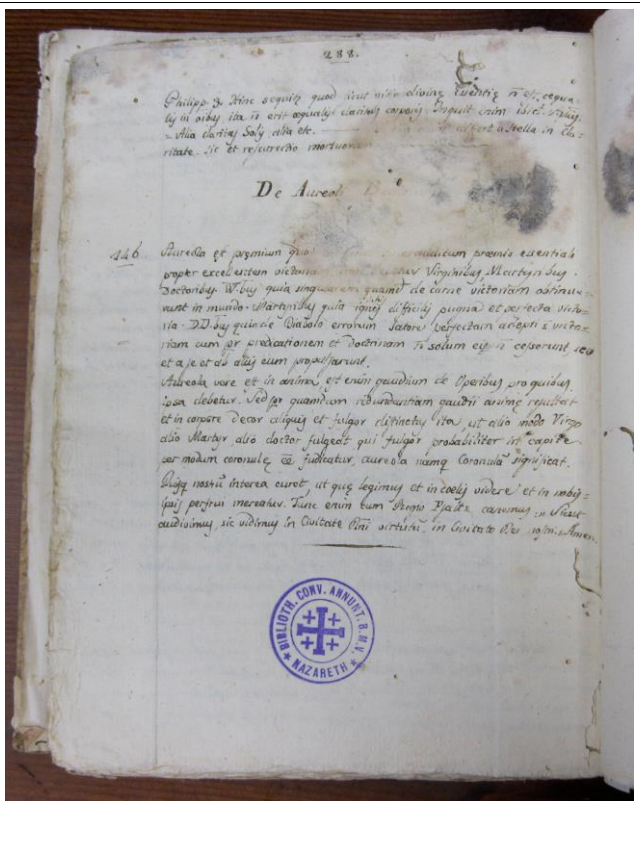 288.
Philipp. 3. Hinc sequit quod sicut visio divinę ę n̄ ēt, ęqua-
lis in oībus ita n̄ erit ęqualis claritas corporis. Inquit enim
= Alia claritas Solis, alia etc. differt a Stella in cla-
ritate. Sic et resurrectio mortuorum
De Aureolis
146 Aureola ęt pręmium præmio essentiali
propter excellentem victoriam Virginibus, Martyribus
Doctoribus. quia singularem quamd. de carne victoriam obtinue-
runt in mundo. Martyribus quia difficilis pugna et perfecta victo-
ria. DD.bus quia de Diabolo errorum Satore perfectam victo-
riam cum per predicationem et doctrinam n̄ solum ei n̄ cesserunt, seu
et a se et ab aliis eum propulsarunt.
Aureola vere et in anima, est enim gaudium de Operibus pro quibus
ipsa debetur. Sed per quamdam redundantiam gaudii animę resultat
et in corpore decor aliquis et fulgor distinctus ita, ut alio modo Virgo
alio Martyr, alio doctor fulgeat qui fulgor probabiliter in capite
per modum coronulę ēē judicatur, aureola namq Coronulā significat.
nostrū interea curet, ut quę legimus et in coelis videre et in nobis =
ipsis perfrui mereatur. Tunc enim cum Regio Psalte, canemus :,, Sicut
audivimus, sic vidimus in Civitate Dn̄i virtutū, in Civitate Dei Amen.
BIBLIOTH. CONV. ANNUNT. B. M. V.
NAZARETH